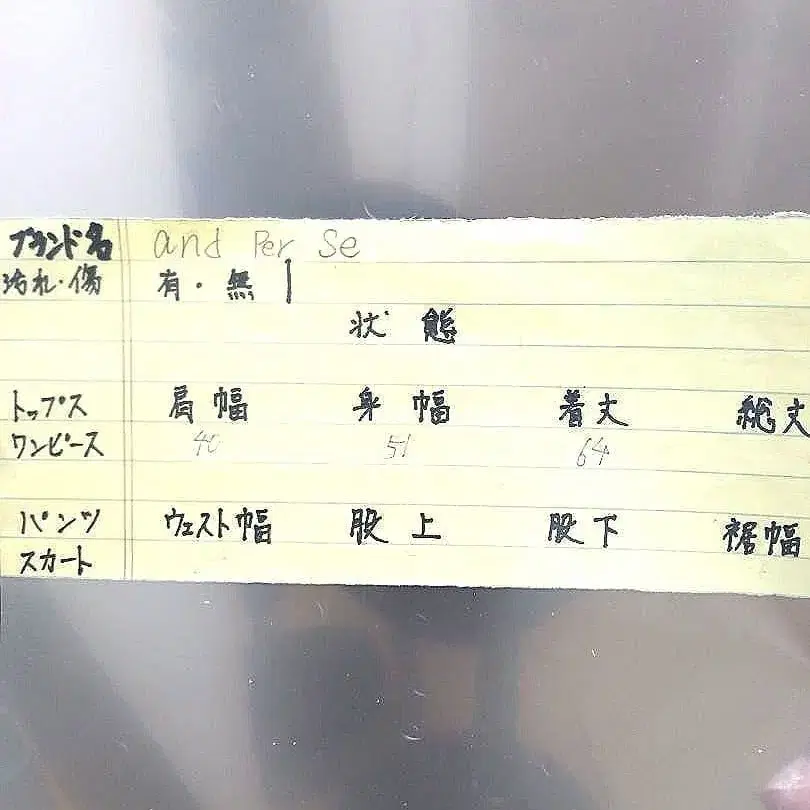 ブランド名 and Per Se
汚れ・傷 有・無
状態
トップス 肩幅 身幅 着丈 総丈
ワンピース 40 51 64
パンツ ウェスト幅 股上 股下 裾幅
スカート